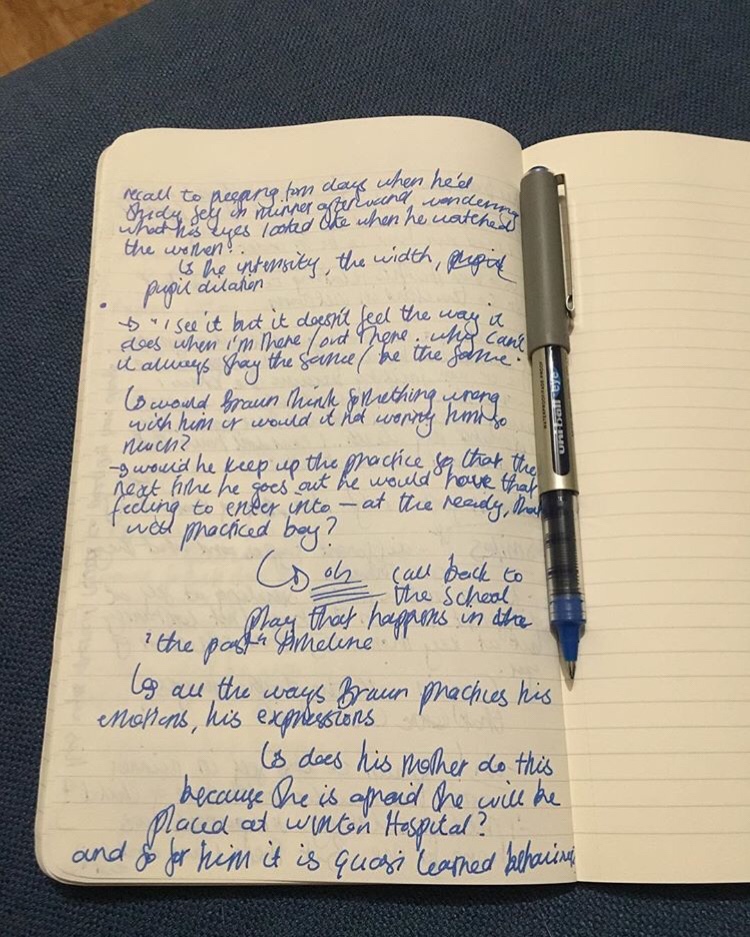 recall to peeping tom days when he'd
study self in mirror afterward, wondering
what his eyes looked like when he watched
the women..
↳ the intensity, the width, pupil
pupil dilation
→ "I see it but it doesn't feel the way it
does when i'm there / out there. why can't
it always stay the same / be the same.
↳ would Braun think something wrong
with him or would it not worry him so
much?
→ would he keep up the practice so that the
next time he goes out he would have that
feeling to enter into — at the ready, that
well practiced boy?
↳ oh call back to
the school
play that happens in the
"the past" timeline
↳ all the ways Braun practices his
emotions, his expressions
↳ does his mother do this
because she is afraid she will be
placed at Winton Hospital?
and so for him it is quasi learned behaviour
uni-ball eye